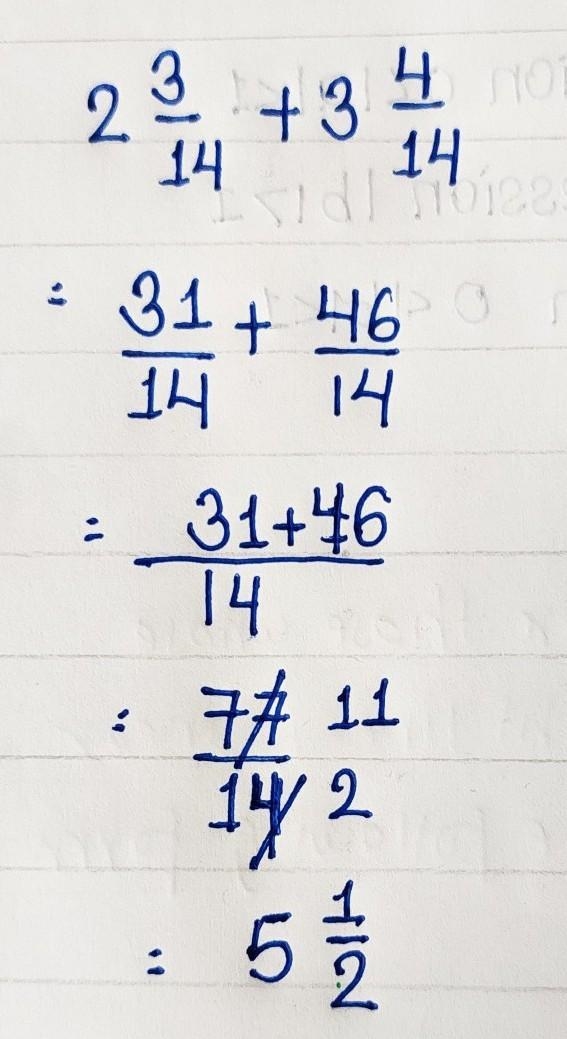 2 3/14 + 3 4/14
= 31/14 + 46/14
= 31+46/14
= 77/14 11/2
= 5 1/2